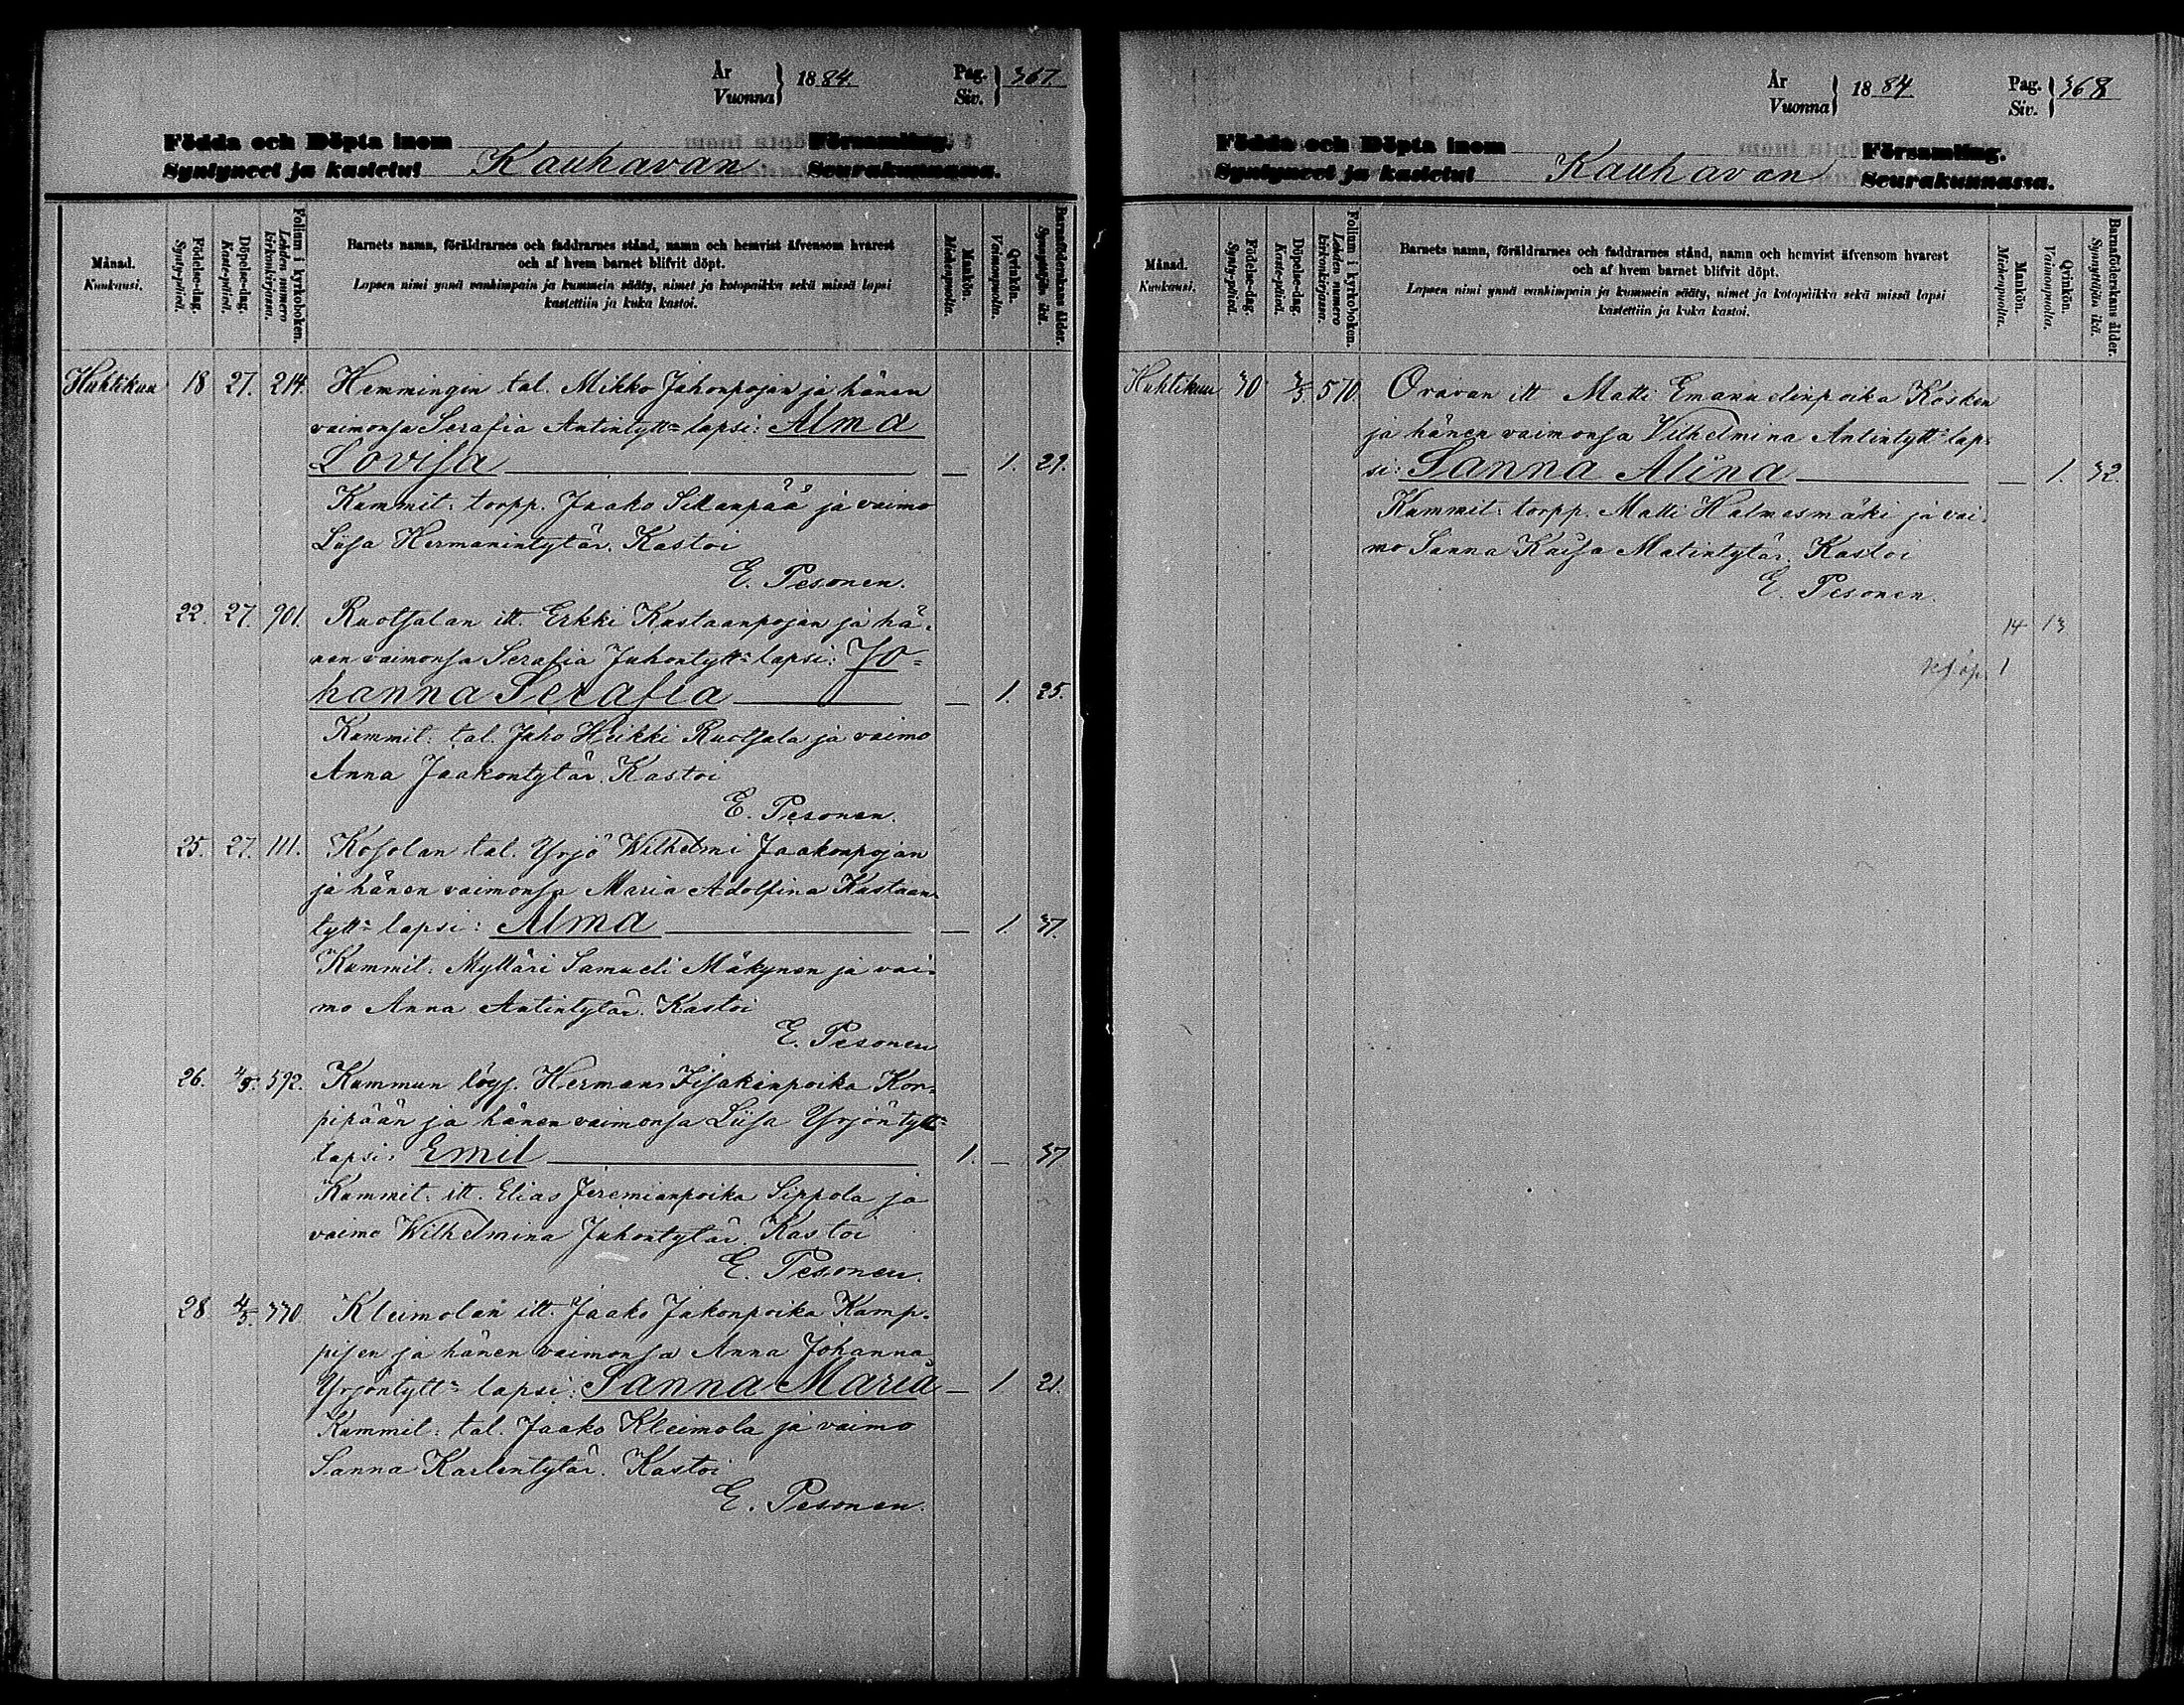 År
Vuonna } 1884. Pag.
Siv. } 367.
Födda och Döpta inom Församling.
Syntyneet ja kastetut Kauhavan Seurakunnassa.
Månad.
Kuukausi.
Födelse-dag.
Synty-päivä.
Döpelse-dag.
Kaste-päivä.
Folium i kyrkoboken.
Lehden numero
kirkonkirjassa.
Barnets namn, föräldrarnes och faddrarnes stånd, namn och hemvist äfvensom hvarest
och af hvem barnet blifvit döpt.
Lapsen nimi ynnä vanhimpain ja kummein sääty, nimet ja kotopaikka sekä missä lapsi
kastettiin ja kuka kastoi.
Mankön.
Miehenpuolta.
Qvinkön.
Vaimonpuolta.
Barnaföderskans ålder.
Synnyttäjän ikä.
Huhtikuu 18 27. 214. Hemmingin tal. Mikko Juhonpojan ja hänen
vaimonsa Serafia Antintytt= lapsi: Alma
Lovisa — 1. 29.
Kummit: torpp. Jaako Sillanpää ja vaimo
Liisa Hermanintytär. Kastoi
E. Pesonen.
22. 27. 901. Ruotsalan itt. Erkki Kustaanpojan ja hä-
nen vaimonsa Serafia Juhontytt= lapsi: Jo=
hanna Serafia — 1. 25.
Kummit: tal. Juho Heikki Ruotsala ja vaimo
Anna Jaakontytär. Kastoi
E. Pesonen.
25. 27. 111. Kosolan tal. Yrjö Wilhelmi Jaakonpojan
ja hänen vaimonsa Maria Adolfina Kustaan-
tytt= lapsi: Alma — 1. 37.
Kummit: Mylläri Samueli Mäkynen ja vai-
mo Anna Antintytär. Kastoi
E. Pesonen
26. 4/5. 592. Kummun löys. Herman Iisakinpoika Kor-
pipään ja hänen vaimonsa Liisa Yrjöntytt=
lapsi: Emil 1. — 37
Kummit: itt. Elias Jeremianpoika Sippola ja
vaimo Wilhelmina Juhontytär. Kastoi
E. Pesonen.
28. 4/5. 330. Kleimolan itt. Jaako Jakonpoika Kamp-
pisen ja hänen vaimonsa Anna Johanna
Yrjöntytt= lapsi: Sanna Maria — 1. 21.
Kummit: tal. Jaako Kleimola ja vaimo
Sanna Karlentytär. Kastoi
E. Pesonen.
År
Vuonna } 1884 Pag.
Siv. } 368
Födda och Döpta inom Församling.
Syntyneet ja kastetut Kauhavan Seurakunnassa.
Månad.
Kuukausi.
Födelse-dag.
Synty-päivä.
Döpelse-dag.
Kaste-päivä.
Folium i kyrkoboken.
Lehden numero
kirkonkirjassa.
Barnets namn, föräldrarnes och faddrarnes stånd, namn och hemvist äfvensom hvarest
och af hvem barnet blifvit döpt.
Lapsen nimi ynnä vanhimpain ja kummein sääty, nimet ja kotopaikka sekä missä lapsi
kastettiin ja kuka kastoi.
Mankön.
Miehenpuolta.
Qvinkön.
Vaimonpuolta.
Barnaföderskans ålder.
Synnyttäjän ikä.
Huhtikuu 30 570. Oravan itt Matti Emanuelinpoika Kosken
ja hänen vaimonsa Vilhelmina Antintytt= lap-
si: Sanna Alina — 1. 32.
Kummit: torpp. Matti Halmesmäki ja vai-
mo Sanna Kaisa Matintytär. Kastoi
E. Pesonen.
14 13
1